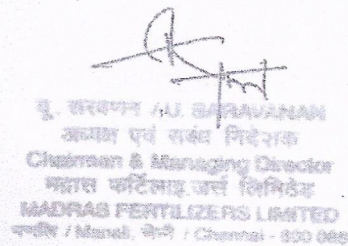 यू. सरवणन / U. SARAVANAN
अध्यक्ष एवं प्रबंध निदेशक
Chairman & Managing Director
मद्रास फर्टिलाइजर्स लिमिटेड
MADRAS FERTILIZERS LIMITED
मणलि / Manali, चेन्नै / Chennai - 600 068